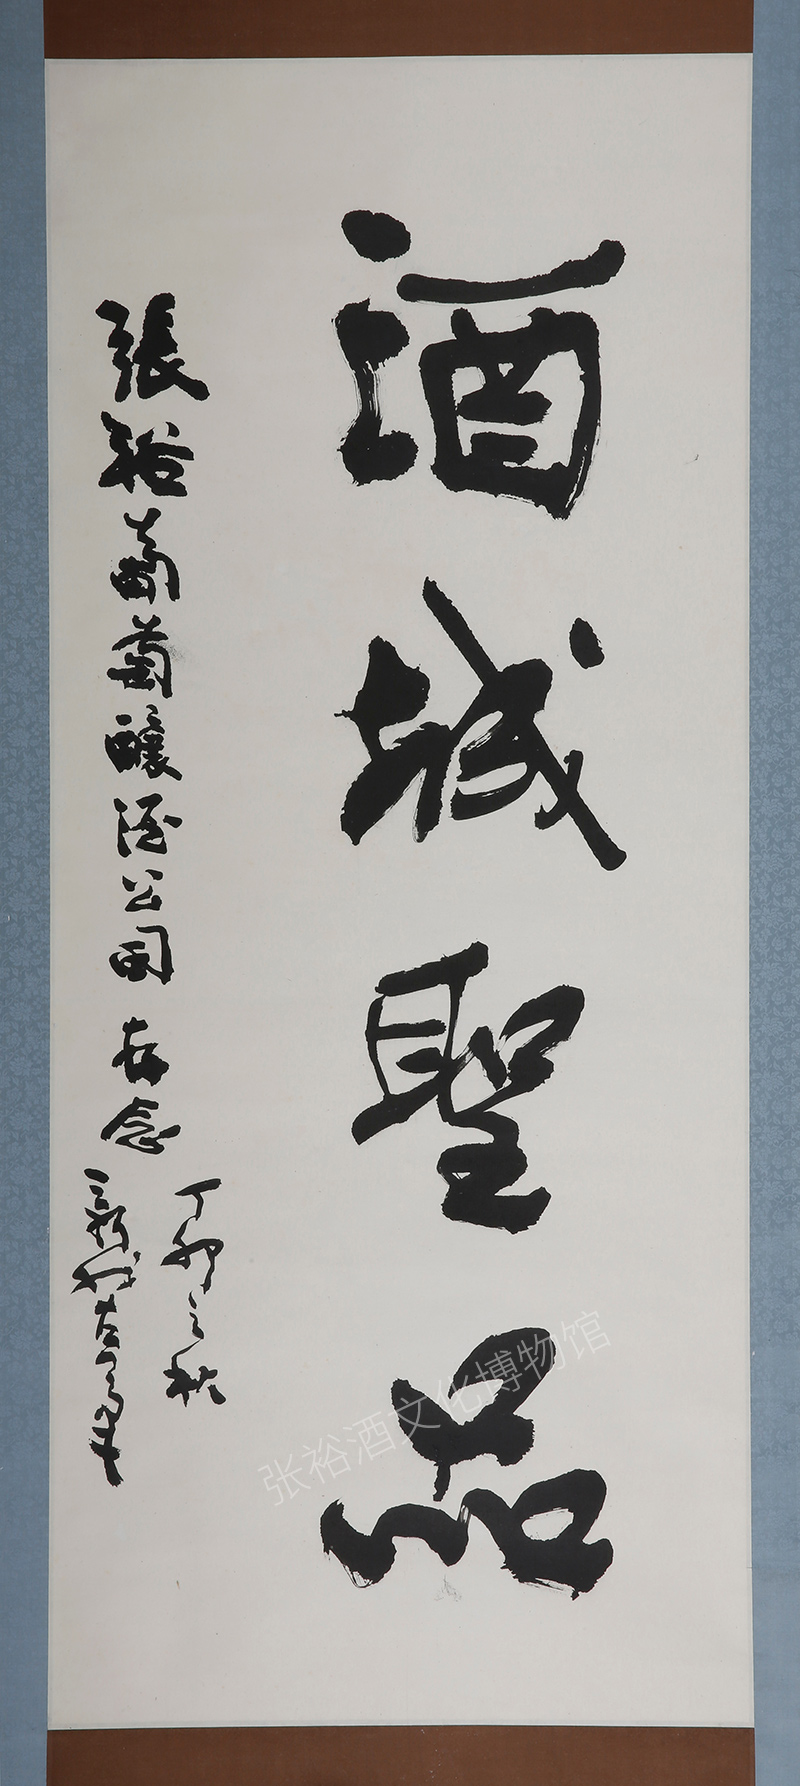 酒城聖品
張裕葡萄釀酒公司存念
丁卯之秋
张裕酒文化博物馆